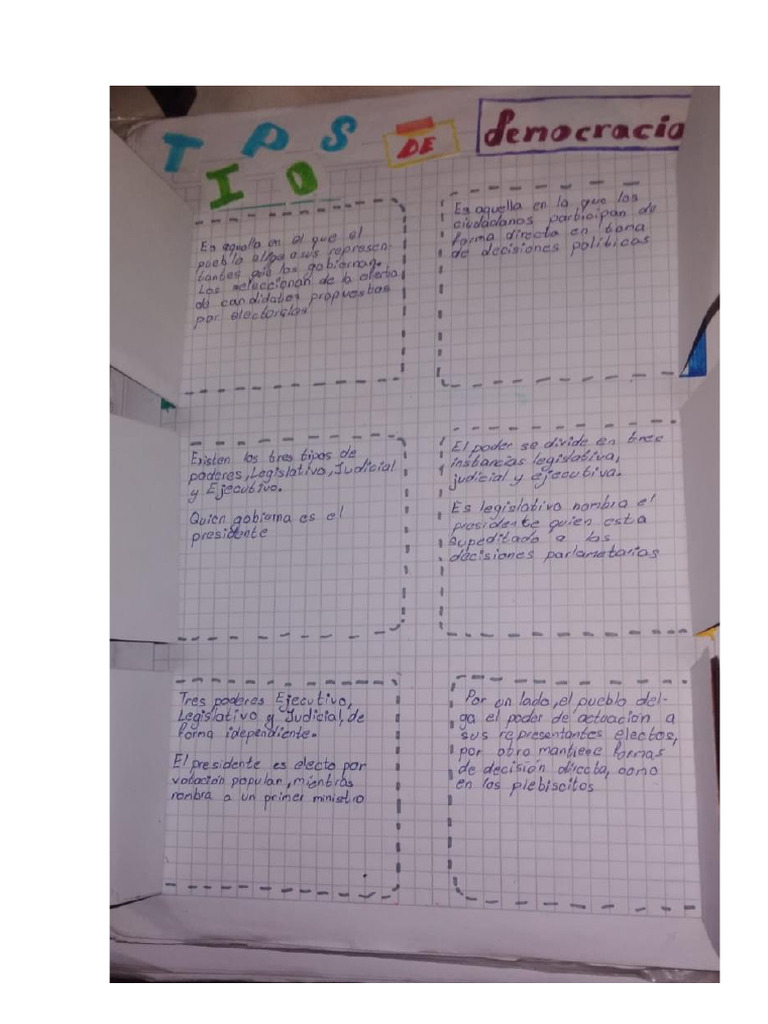 TIPOS DE democracia
Es aquella en el que el
pueblo elige a sus represen-
tantes que los gobiernan.
Los seleccionan de la oferta
de candidatos propuestas
por electorales
Es aquella en la que los
ciudadanos participan de
forma directa en toma
de decisiones políticas
Existen los tres tipos de
poderes, Legislativo, Judicial
y Ejecutivo.
Quien gobierna es el
presidente
El poder se divide en tres
instancias legislativa,
judicial y ejecutiva.
Es legislativo nombra el
presidente quien esta
supeditado a las
decisiones parlametarias
Tres poderes Ejecutivo,
Legislativo y Judicial, de
forma idependiente.
El presidente es electo por
votación popular, mientras
nombra a un primer ministro
Por un lado, el pueblo dele-
ga el poder de actuación a
sus representantes electos,
por otro mantiene formas
de decisión directa, como
en los plebiscitos